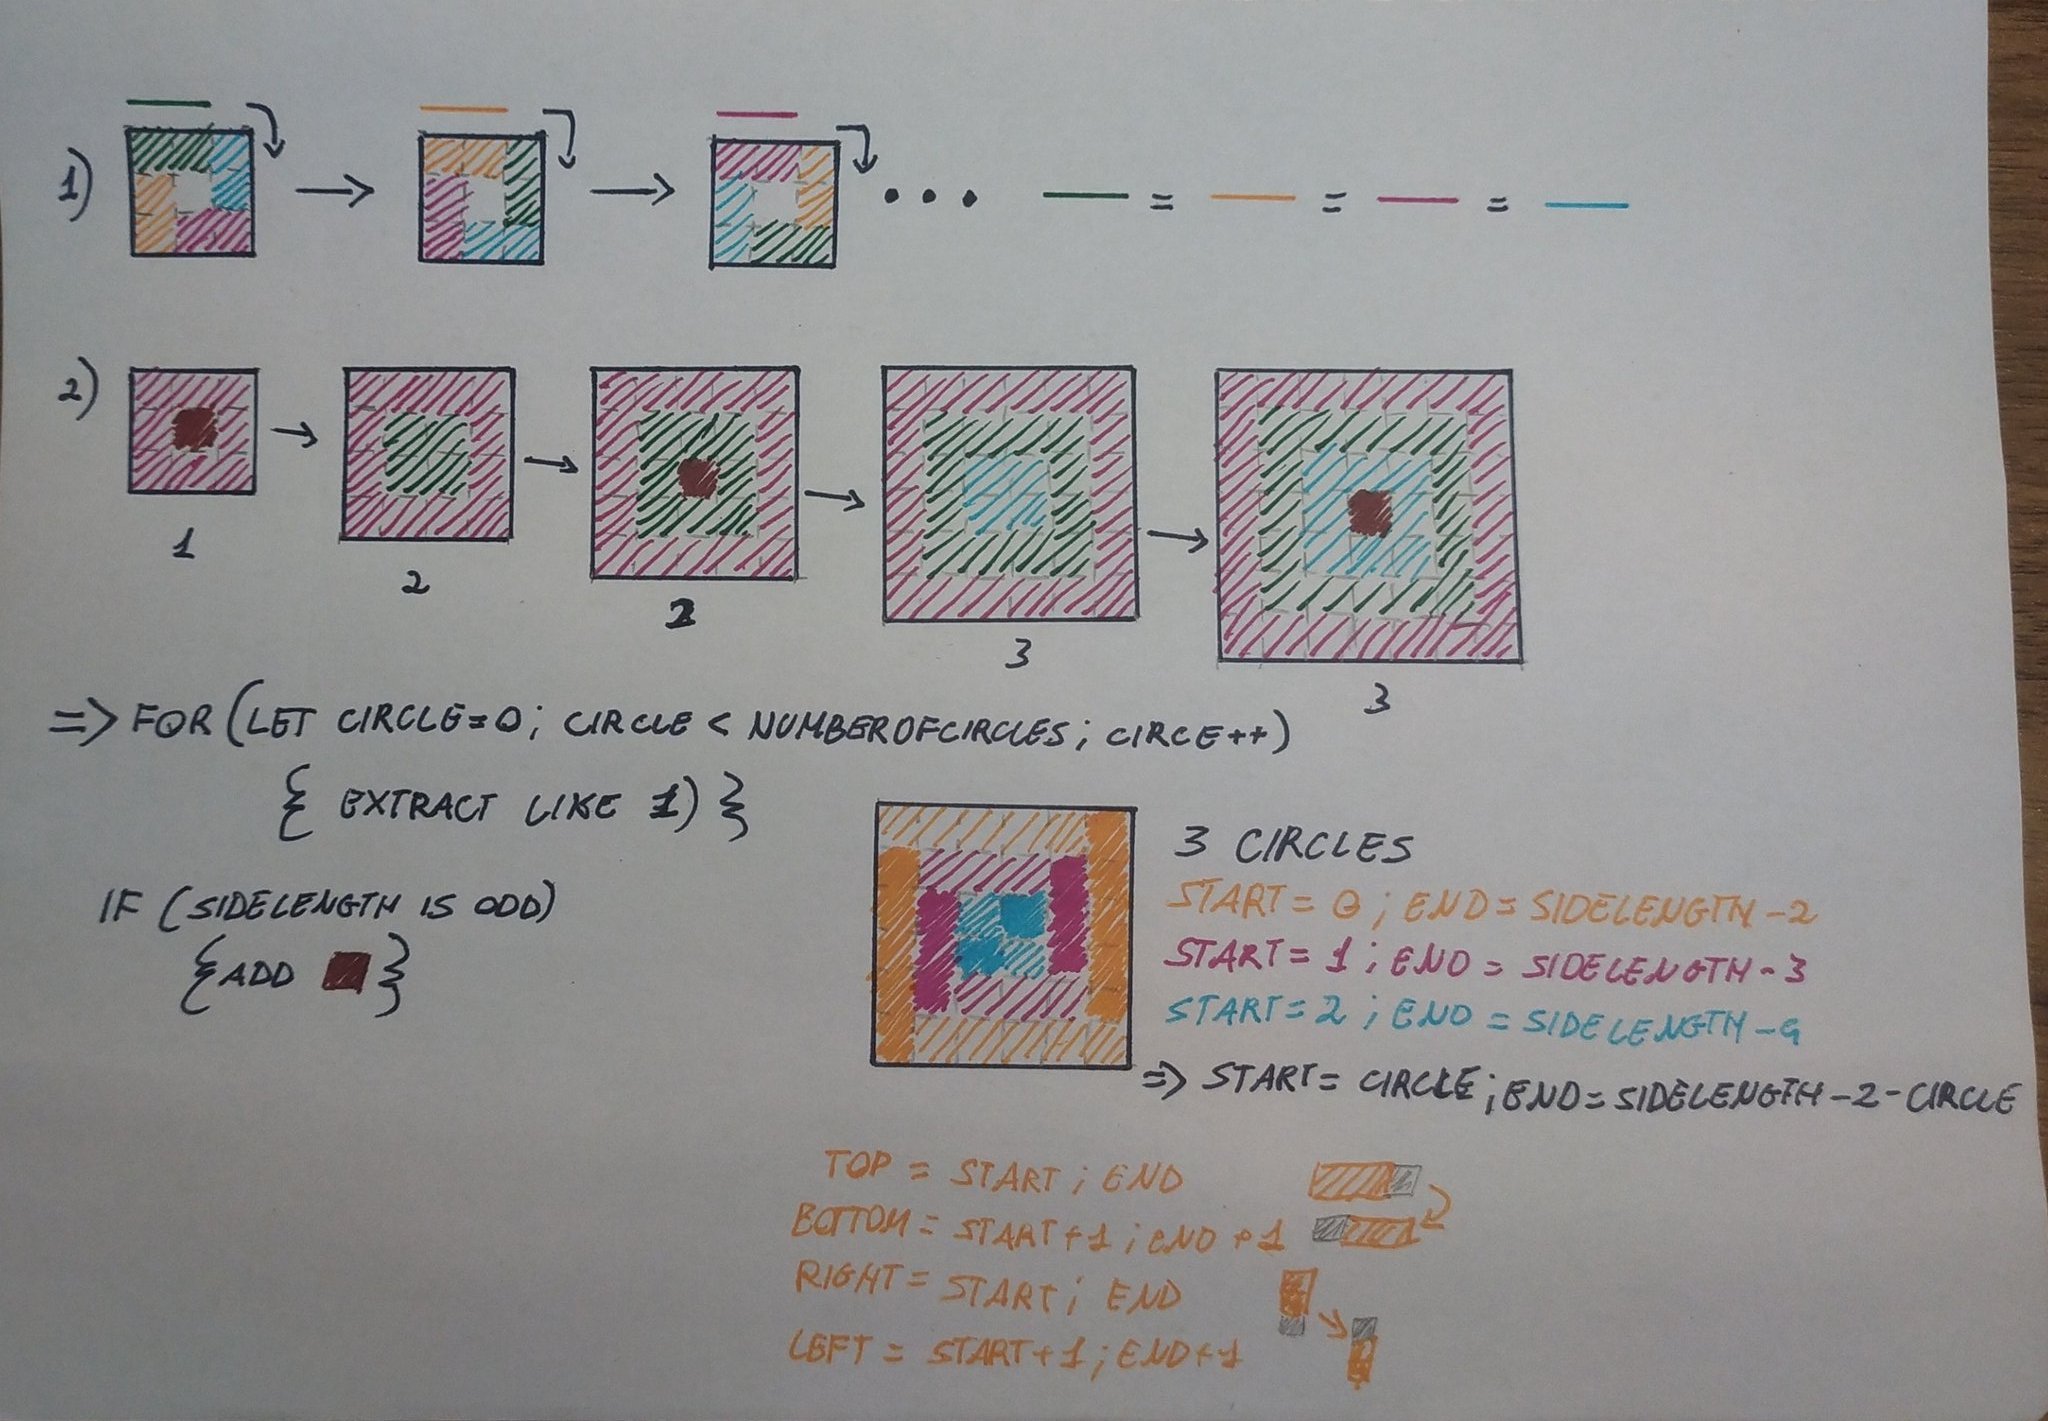 1)
= = =
2)
1
2
2
3
3
=> FOR (LET CIRCLE=0; CIRCLE < NUMBEROFCIRCLES; CIRCE++)
{ EXTRACT LIKE 1) }
IF (SIDELENGTH IS ODD)
{ADD }
3 CIRCLES
START = 0; END = SIDELENGTH-2
START = 1; END = SIDELENGTH-3
START = 2; END = SIDELENGTH-4
=> START = CIRCLE; END = SIDELENGTH-2-CIRCLE
TOP = START; END
BOTTOM = START+1; END+1
RIGHT = START; END
LEFT = START+1; END+1